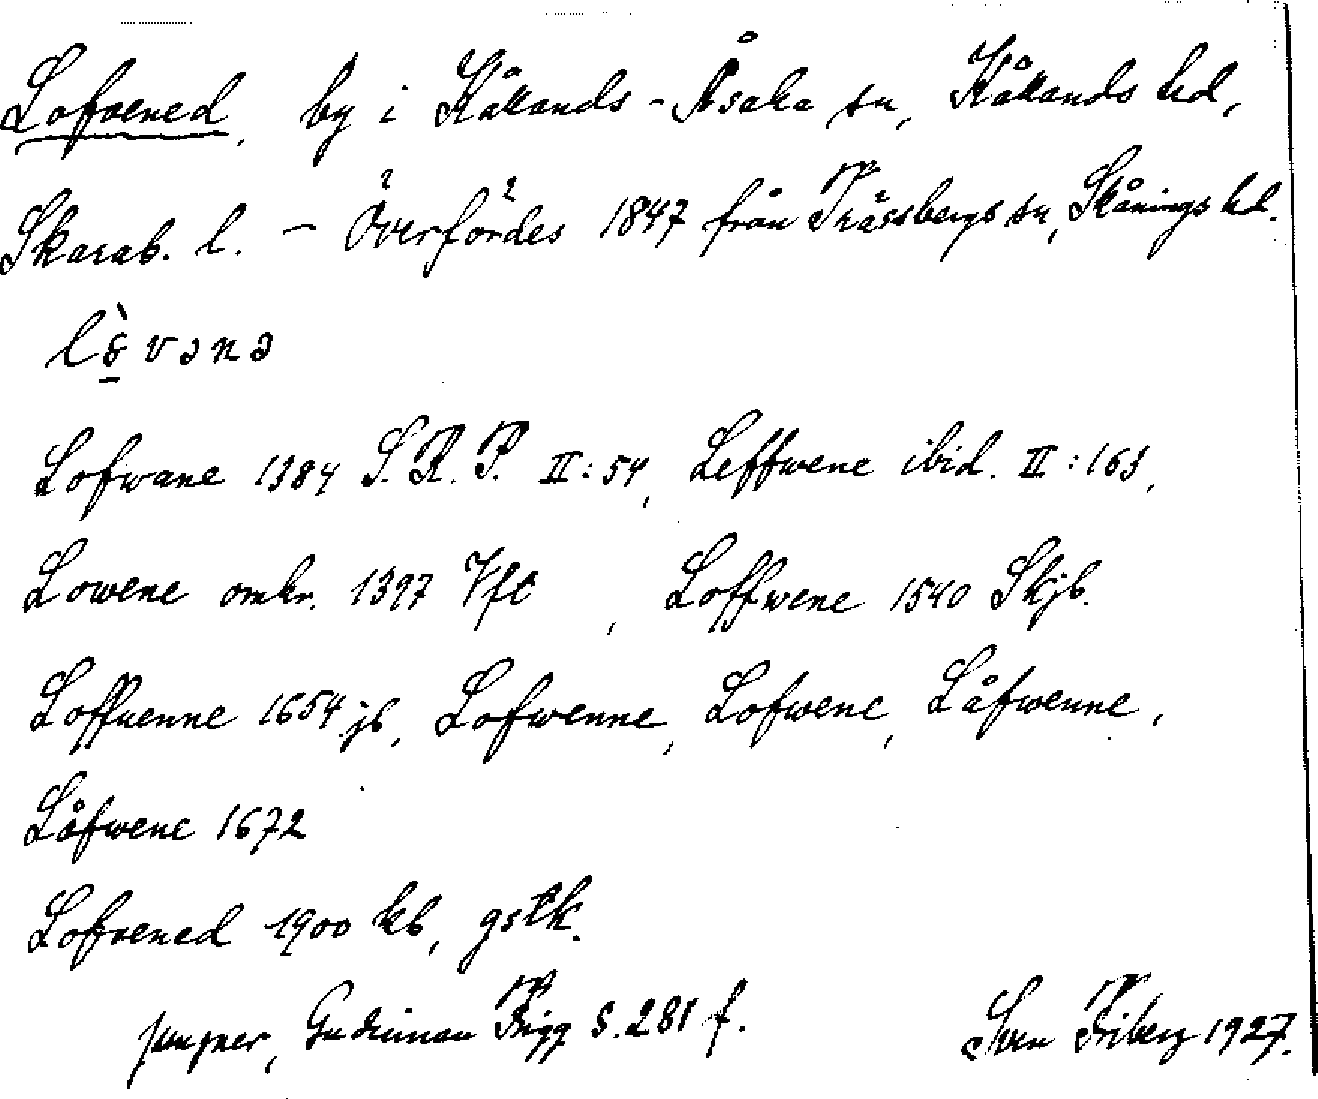 Lofvened, by i Kållands-Åsaka sn, Kållands hd,
Skarab. l. – Överfördes 1847 från Trässbergs sn, Skånings hd.
Lofwane 1384 S.R.P. II:54, Leffwene ibid. II:163,
Lowene omkr. 1397 Vft, Loffwene 1540 Skjb.
Loffuenne 1654 jb, Lofwenne, Lofwene, Låfwenne,
Låfwene 1672
Lofvened 1900 kb, gstk.
Jungner, Gudinnan Frigg s. 281 f. Sven Friberg 1927.